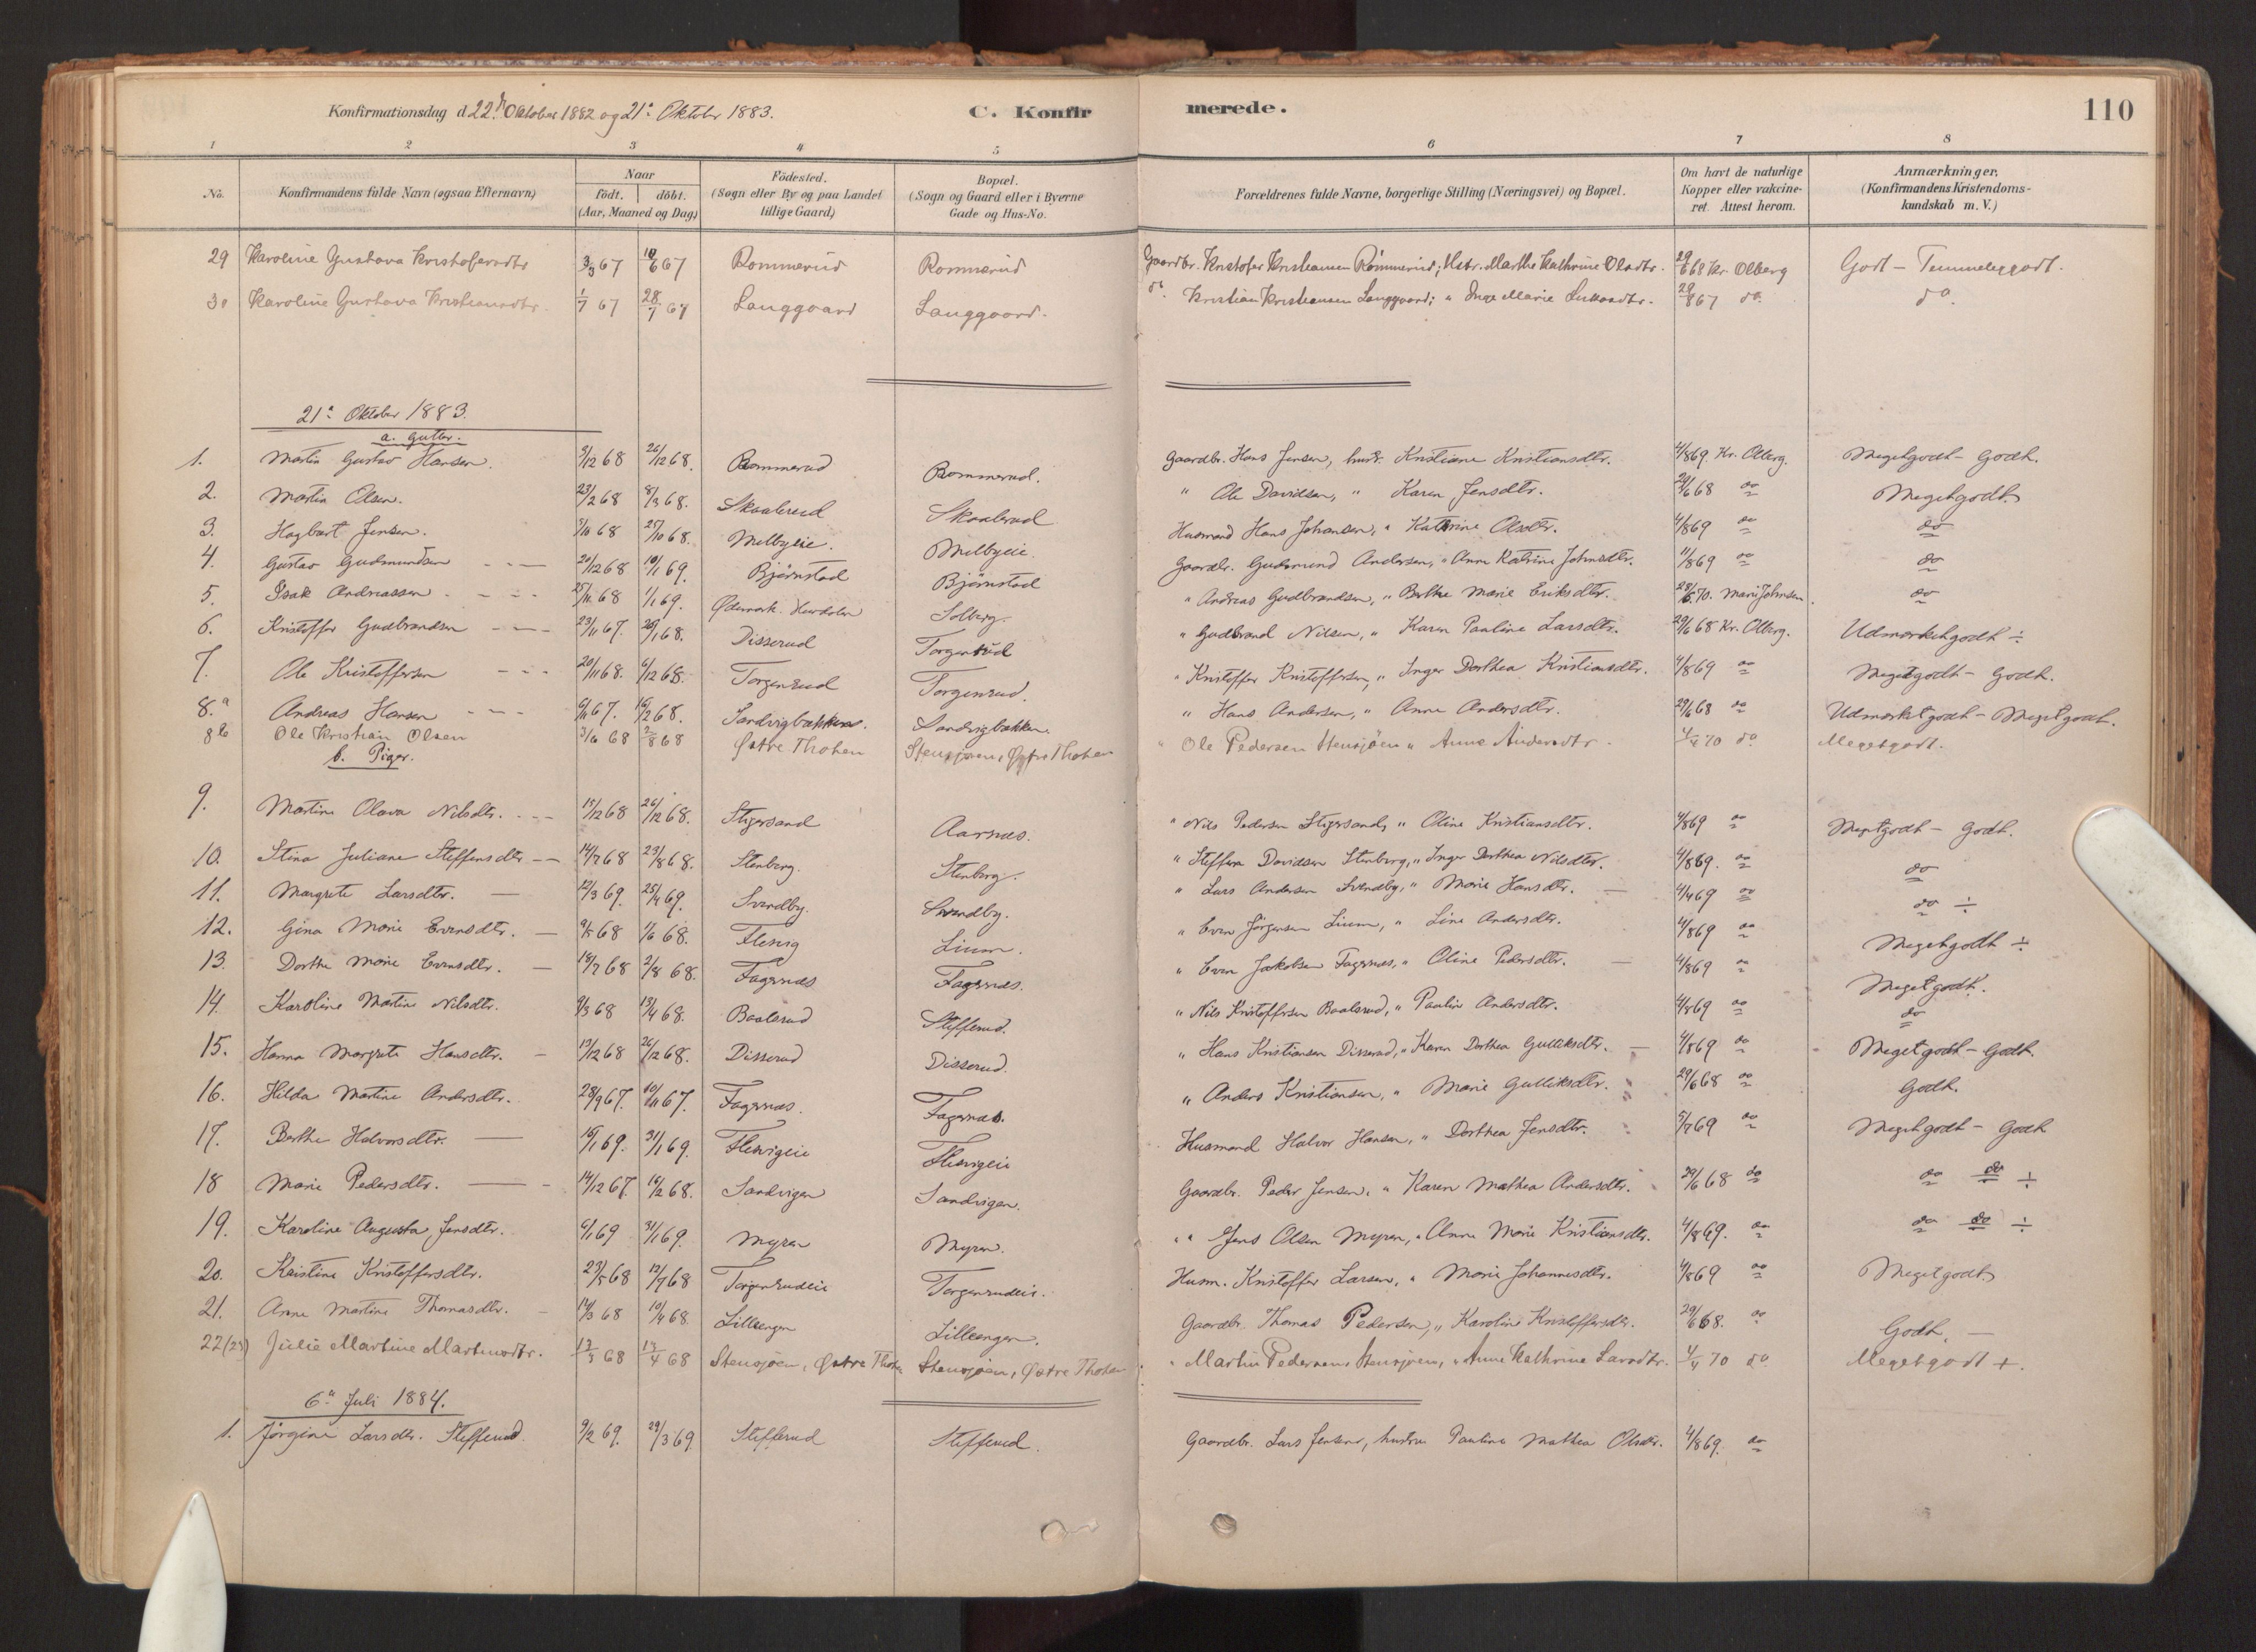 Konfirmationsdag d 22de Oktober 1882 og 21a Oktober 1883.
C. Konfirmerede.
110
1 2 3 4 5 6 7 8
No. Konfirmandens fulde Navn (ogsaa Efternavn) Naar født. døbt. (Aar, Maaned og Dag) Födested. (Sogn eller By og paa Landet tillige Gaard) Bopæl. (Sogn og Gaard eller i Byerne Gade og Hus-No. Forældrenes fulde Navne, borgerlige Stilling (Næringsvei) og Bopæl. Om havt de naturlige Kopper eller vakcineret. Attest herom. Anmærkninger. (Konfirmandens Kristendomskundskab m. V.)
29 Karoline Gustava Kristofersdtr 3/3 67 10/6 67 Rommerud Rommerud Gaardbr. Kristofer Kristiansen Rommerud; Hstr. Marthe Kathrine Olsdtr. 29/6 68 Kr. Olberg Godt - Temmeliggodt.
30 Karoline Gustava Kristiansdtr. 1/7 67 28/7 67 Langgaard Langgaard. do Kristian Kristiansen Langgaard; " Inge Marie 29/8 67 do. do.
21a Oktober 1883.
a. Gutter.
1. Martin Gustav Hansen. 3/12 68 26/12 68. Rommerud Rommerud. Gaardbr. Hans Jensen, hustr. Kristiane Kristiansdtr. 4/8 69 Kr. Olberg. Megetgodt - Godt.
2. Martin Olsen. 23/2 68 8/3 68. Skaalerud Skaalerud " Ole Davidsen, " Karen Jensdtr. 29/6 68 do Megetgodt
3. Hagbart Jensen. 3/10 68 25/10 68. Melbyeie. Melbyeie. Husmand Hans Johansen, " Katrine Olsdtr. 4/8 69 do do
4. Gustav Gudmundsen 20/12 68 10/1 69. Bjørnstad Bjørnstad Gaardbr. Gudmund Andersen, " Anne Katrine Johnsdtr. 11/8 69 do do
5. Isak Andreassen 25/11 68 1/1 69. Ødemark. Solberg. " Andreas Gudbrandsen, " Berthe Marie Eriksdtr. 28/6 70. Mari Johnsen. do
6. Kristoffer Gudbrandsen 23/11 67. 26/1 68. Disserud Torgenrud " Gudbrand Nilsen, " Karen Pauline Larsdtr. 29/6 68 Kr. Olberg. Udmærketgodt ÷
7. Ole Kristoffersen 20/11 68. 6/12 68. Torgenrud Torgenrud. " Kristoffer Kristoffersen, " Inger Dorthea Kristiansdtr. 4/8 69 do Megetgodt - Godt.
8.a Andreas Hansen 6/11 67. 16/2 68. Sandvigbakken. Sandvigbakken. " Hans Andersen, " Anne Andersdtr. 29/6 68 do Udmærketgodt - Megetgodt.
8b Ole Kristian Olsen 3/6 68 2/8 68 Østre Thoten Stensjøen, Østre Thoten " Ole Pedersen Stensjøen " Anne Andersdtr. 4/4 70 do Megetgodt.
b. Piger.
9. Martine Olava Nilsdtr. 15/12 68 26/12 68. Stigersand Aarnæs. " Nils Pedersen Stigersand, " Oline Kristiansdtr. 4/8 69 do Megetgodt - Godt.
10. Stina Juliane Steffensdtr 14/7 68 23/8 68. Stenberg. Stenberg. " Steffen Davidsen Stenberg, " Inger Dorthea Nilsdtr. 4/8 69. do do
11. Margrete Larsdtr. 12/3 69. 25/4 69. Svendby. Svendby. " Lars Andersen Svendby, " Marie Hansdtr. 4/4 69 do do ÷
12. Gina Marie Evensdtr. 9/5 68 1/6 68. Flesvig Lium. " Even Jørgensen Lium, " Line Andersdtr. 4/8 69 do Megetgodt ÷
13. Dorthe Marie Evensdtr. 18/7 68 2/8 68. Fagernæs Fagernæs. " Even Jakobsen Fagernæs, " Oline Pedersdtr. 4/8 69 do Megetgodt.
14. Karoline Martine Nilsdtr. 9/3 68 13/4 68. Baalerud Stefferud. " Nils Kristoffersen Baalerud, " Pauline Andersdtr. 4/8 69 do do
15. Hanna Margrete Hansdtr. 13/12 68 26/12 68. Disserud Disserud. " Hans Kristiansen Disserud, " Karen Dorthea Gulliksdtr. 4/8 69 do Megetgodt - Godt.
16. Hilda Martine Andersdtr. 28/9 67. 10/11 67. Fagernæs. Fagernæs. " Anders Kristiansen, " Marie Gulliksdtr. 29/6 68 do Godt.
17. Berthe Halvorsdtr. 15/1 69. 31/1 69. Flesvigeie Flesvigeie Husmand Halvor Hansen, " Dorthea Jensdtr. 5/7 69 do Megetgodt - Godt
18 Marie Pedersdtr. 14/12 67. 16/2 68. Sandvigen Sandvigen. Gaardbr. Peder Jensen, " Karen Mathea Andersdtr. 29/6 68 do do do ÷
19. Karoline Augusta Jensdtr. 6/1 69 31/1 69. Myren Myren. " " Jens Olsen Myren, " Anne Marie Kristiansdtr. 4/8 69. do do do ÷
20. Kristine Kristoffersdtr. 23/5 68 12/7 68 Torgenrudeie Torgenrudeie. Husm. Kristoffer Larsen, " Marie Johannesdtr. 4/8 69 do Megetgodt
21. Anne Martine Thomasdtr. 14/3 68 10/4 68. Lilleengen Lilleengen. Gaardbr. Thomas Pedersen, " Karoline Kristoffersdtr. 29/6 68. do Godt. -
22(23) Julie Martine Martinsdtr. 12/3 68 13/4 68 Stensjøen, Østre Thoten Stensjøen, Østre Thoten " Martin Pedersen Stensjøen, " Anne Kathrine Larsdtr. 4/4 70 do Megetgodt +.
6a Juli 1884.
1. Jørgine Larsdtr. Stefferud. 9/2 69. 29/3 69 Stefferud Stefferud. Gaardbr. Lars Jensen, hustru Pauline Mathea Olsdtr. 4/8 69. do